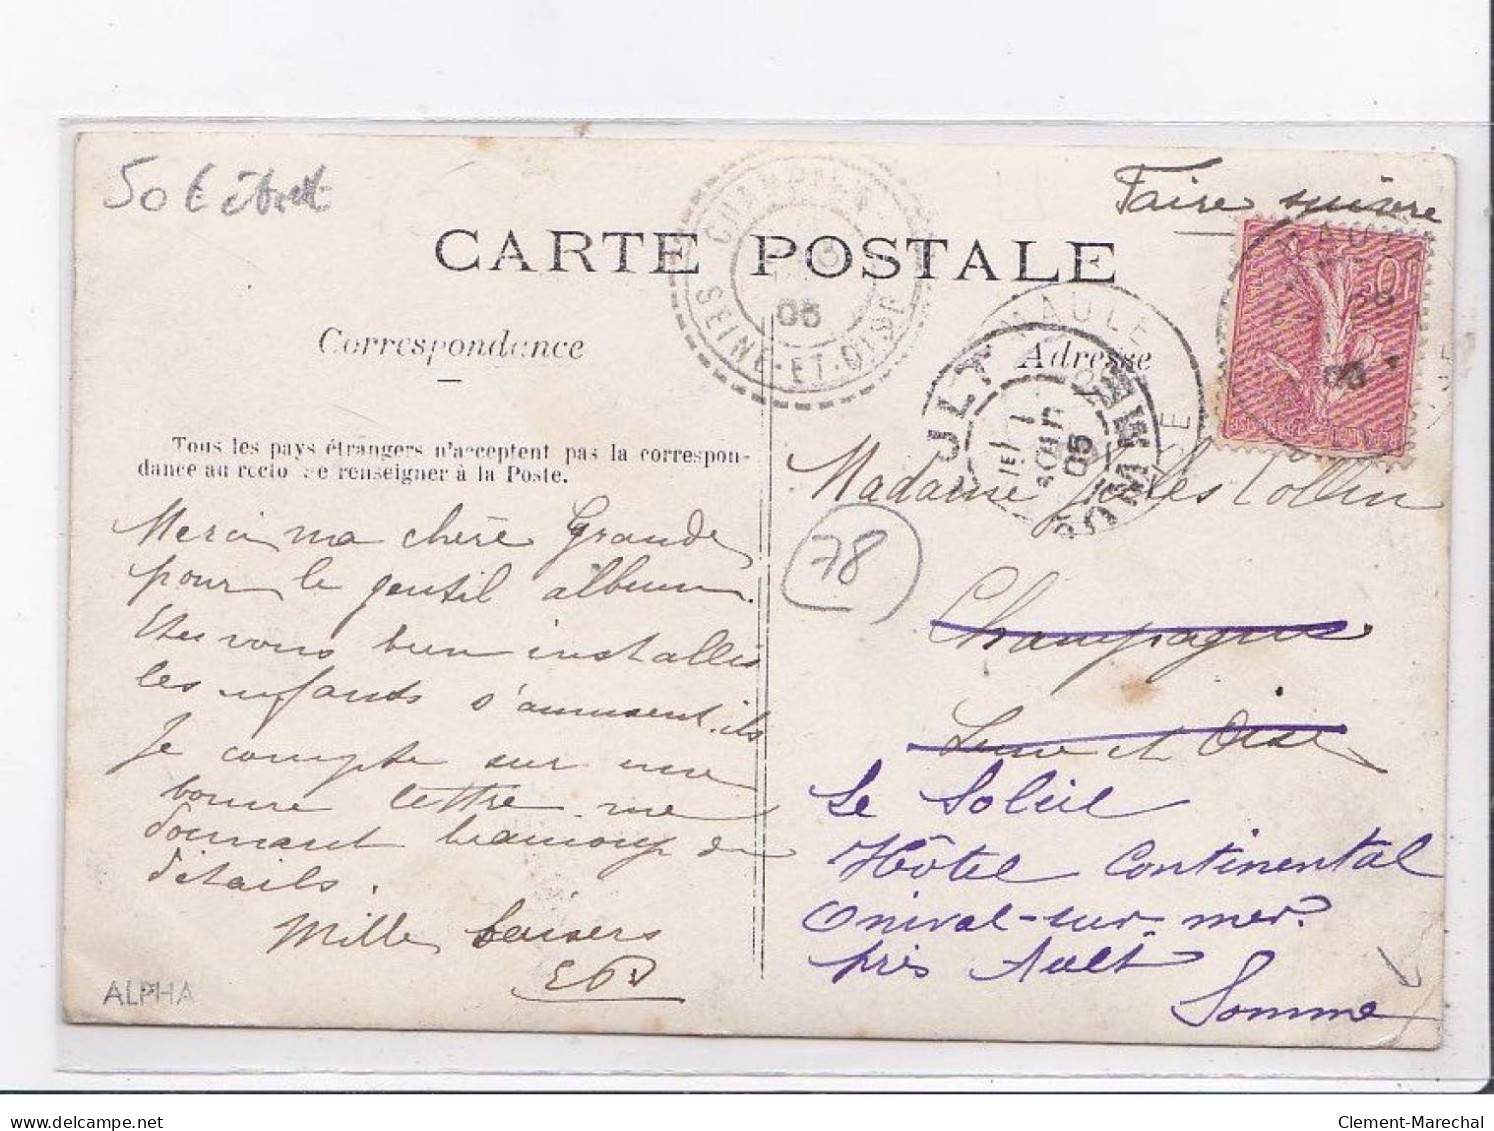 50 €
Faire suivre
CARTE POSTALE
SEINE-ET-OISE
05
MAULE
Correspondance
Adresse
AULT
SOMME
05
Tous les pays étrangers n'acceptent pas la correspon-
dance au recto (se renseigner à la Poste).
Madame Jules Collin
78
Champagne
Seine et Oise
Le Soleil
Hôtel Continental
Onival-sur-mer
près Ault
Somme
Merci ma chère Grande
pour le gentil album.
Etes vous bien installés
les enfants s'amusent-ils
Je compte sur une
bonne lettre me
donnant beaucoup de
détails.
Mille baisers
ALPHA
www.delcampe.net
Clement-Marechal